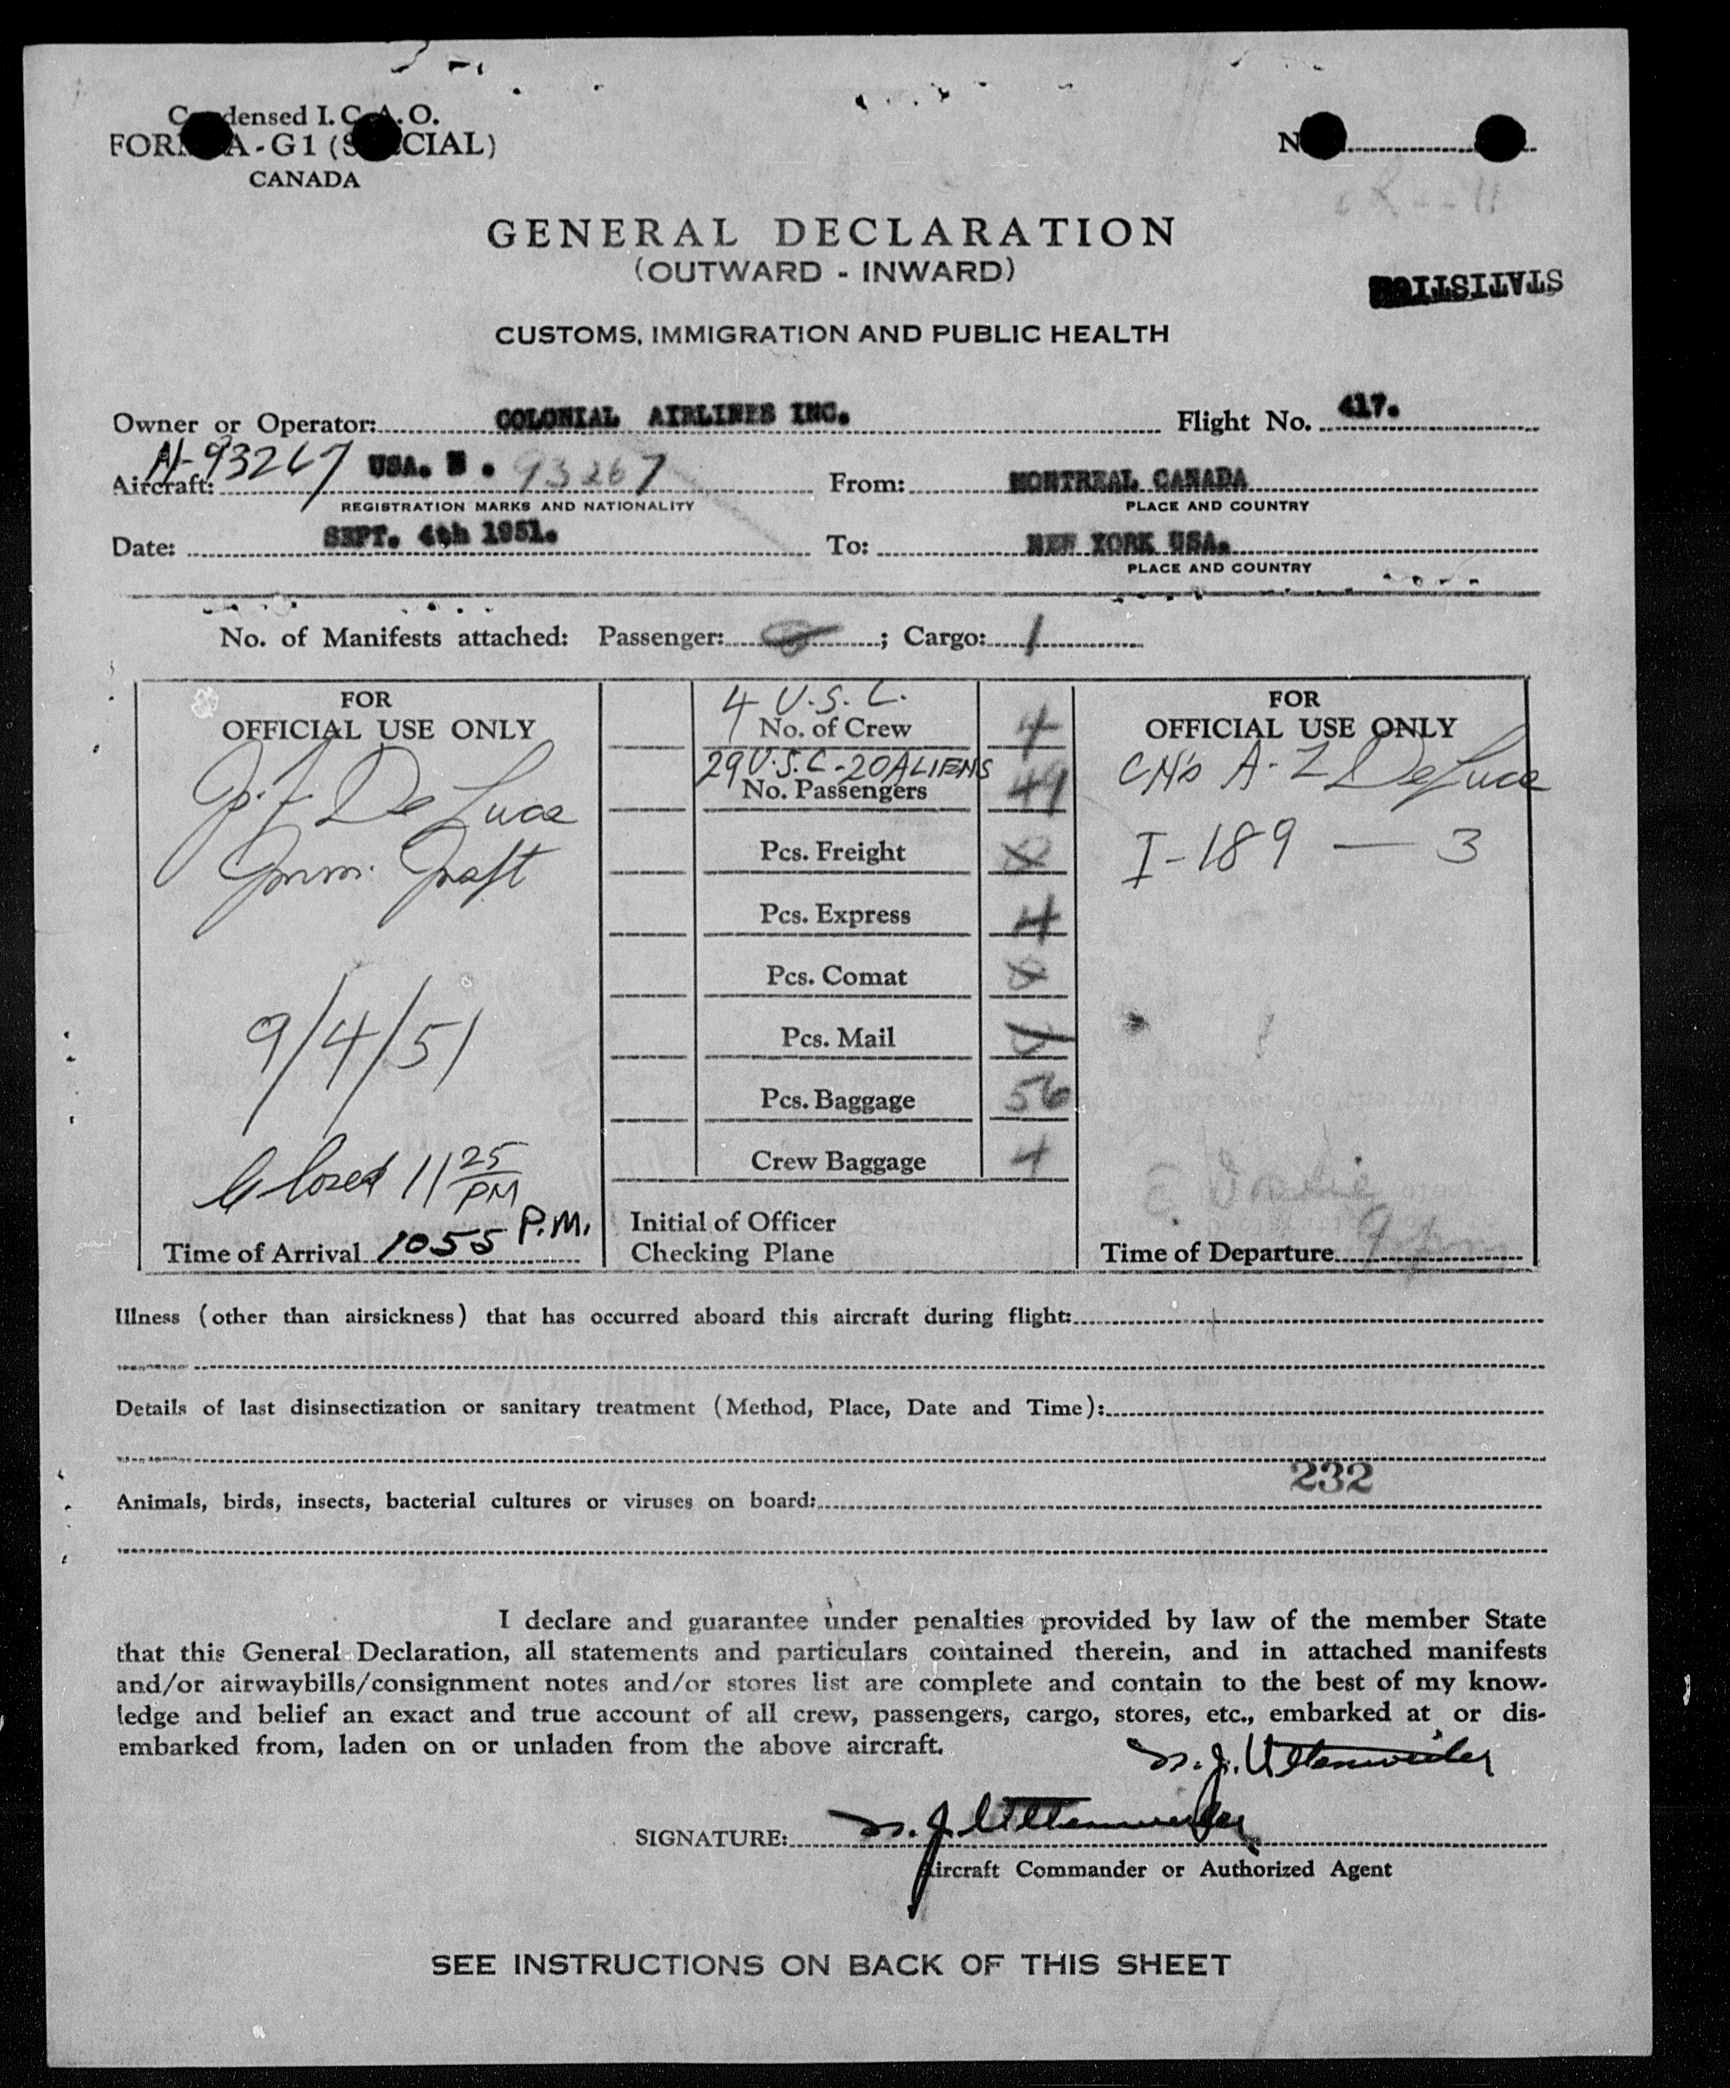 Condensed I. C. A. O.
FORM A-G1 (SPECIAL)
CANADA
GENERAL DECLARATION
(OUTWARD - INWARD)
STATISTICS
CUSTOMS, IMMIGRATION AND PUBLIC HEALTH
Owner or Operator: COLONIAL AIRLINES INC. Flight No. 417.
Aircraft: N-93267 USA. N . 93267 From: MONTREAL CANADA
REGISTRATION MARKS AND NATIONALITY PLACE AND COUNTRY
Date: SEPT. 4th 1951. To: NEW YORK USA.
PLACE AND COUNTRY
No. of Manifests attached: Passenger: 0 ; Cargo: 1
FOR 4 U.S.C. FOR
OFFICIAL USE ONLY No. of Crew 4 OFFICIAL USE ONLY
29 U.S.C-20 ALIENS CN's A-2 De Luca
No. Passengers 49
De Luca
Pcs. Freight 0 I-189 — 3
Imm.
Pcs. Express 4
Pcs. Comat 0
9/4/51 Pcs. Mail
Pcs. Baggage 56
Closed 11 25 PM Crew Baggage 4
P.M. Initial of Officer
Time of Arrival 1055 Checking Plane Time of Departure 9 pm
Illness (other than airsickness) that has occurred aboard this aircraft during flight:
Details of last disinsectization or sanitary treatment (Method, Place, Date and Time):
232
Animals, birds, insects, bacterial cultures or viruses on board:
I declare and guarantee under penalties provided by law of the member State
that this General Declaration, all statements and particulars contained therein, and in attached manifests
and/or airwaybills/consignment notes and/or stores list are complete and contain to the best of my know-
ledge and belief an exact and true account of all crew, passengers, cargo, stores, etc., embarked at or dis-
embarked from, laden on or unladen from the above aircraft.
J. Uttenweiler
SIGNATURE: J. Uttenweiler
Aircraft Commander or Authorized Agent
SEE INSTRUCTIONS ON BACK OF THIS SHEET